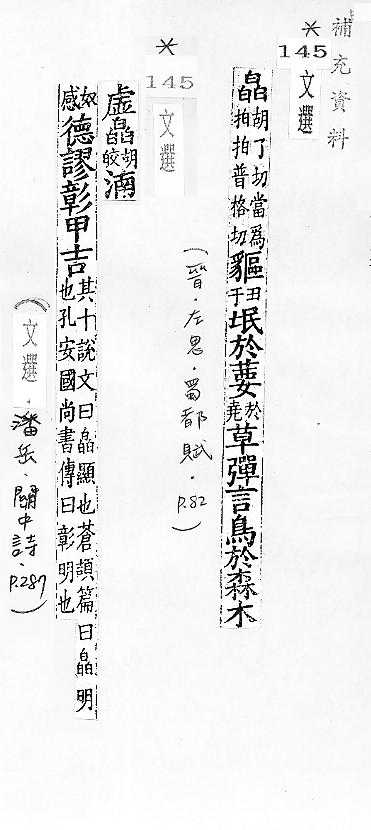 補充資料
*
145
文選
皛胡了切當爲拍拍普格切貙丑于氓於葽於堯草彈言鳥於森木
(晉.左思.蜀都賦.P.82)
*
145
文選
虛皛胡皎湳
奴感德謬彰甲吉其十說文曰皛顯也蒼頡篇曰皛明也孔安國尚書傳曰彰明也
(文選.潘岳.關中詩.P.287)